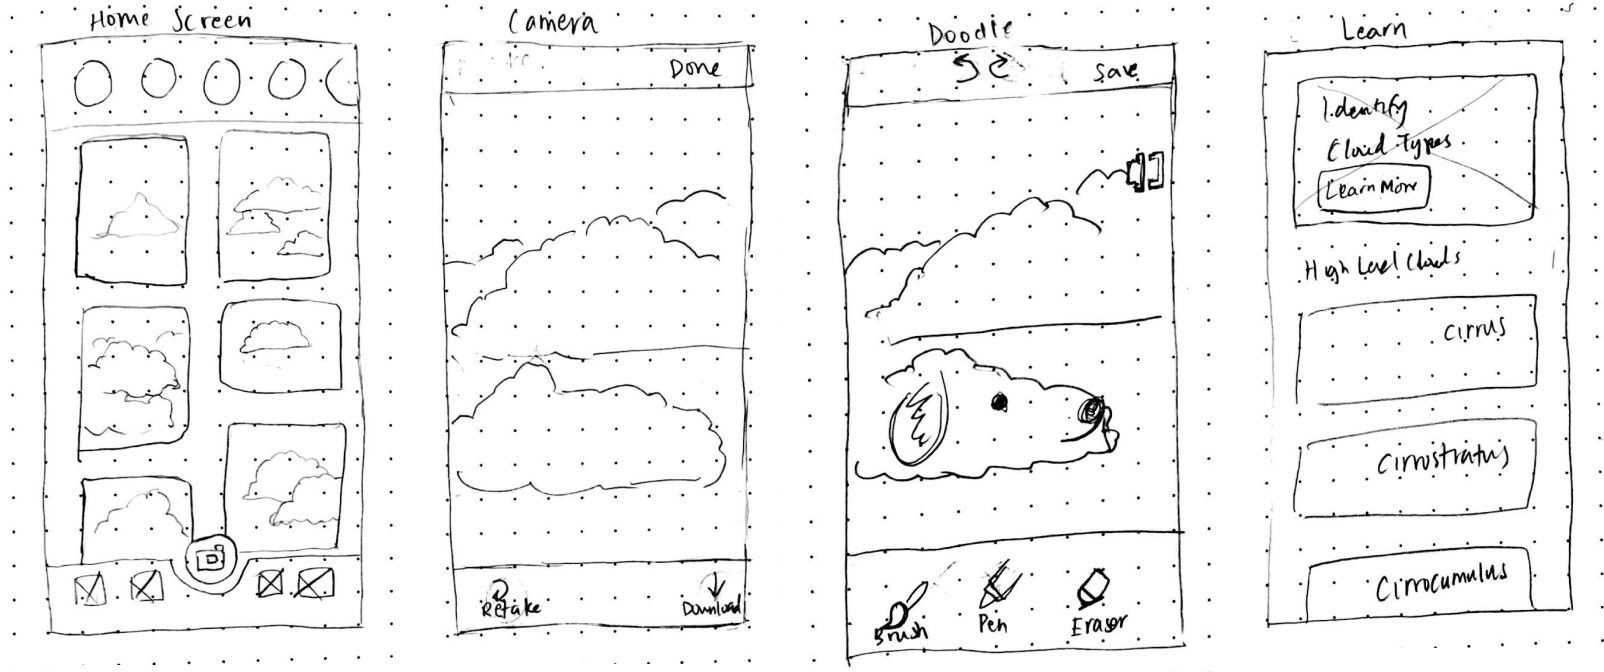 Home Screen
Camera
Done
Retake
Download
Doodle
Save
Brush
Pen
Eraser
Learn
Identify
Cloud Types
Learn More
High Level Clouds
Cirrus
Cirrostratus
Cirrocumulus